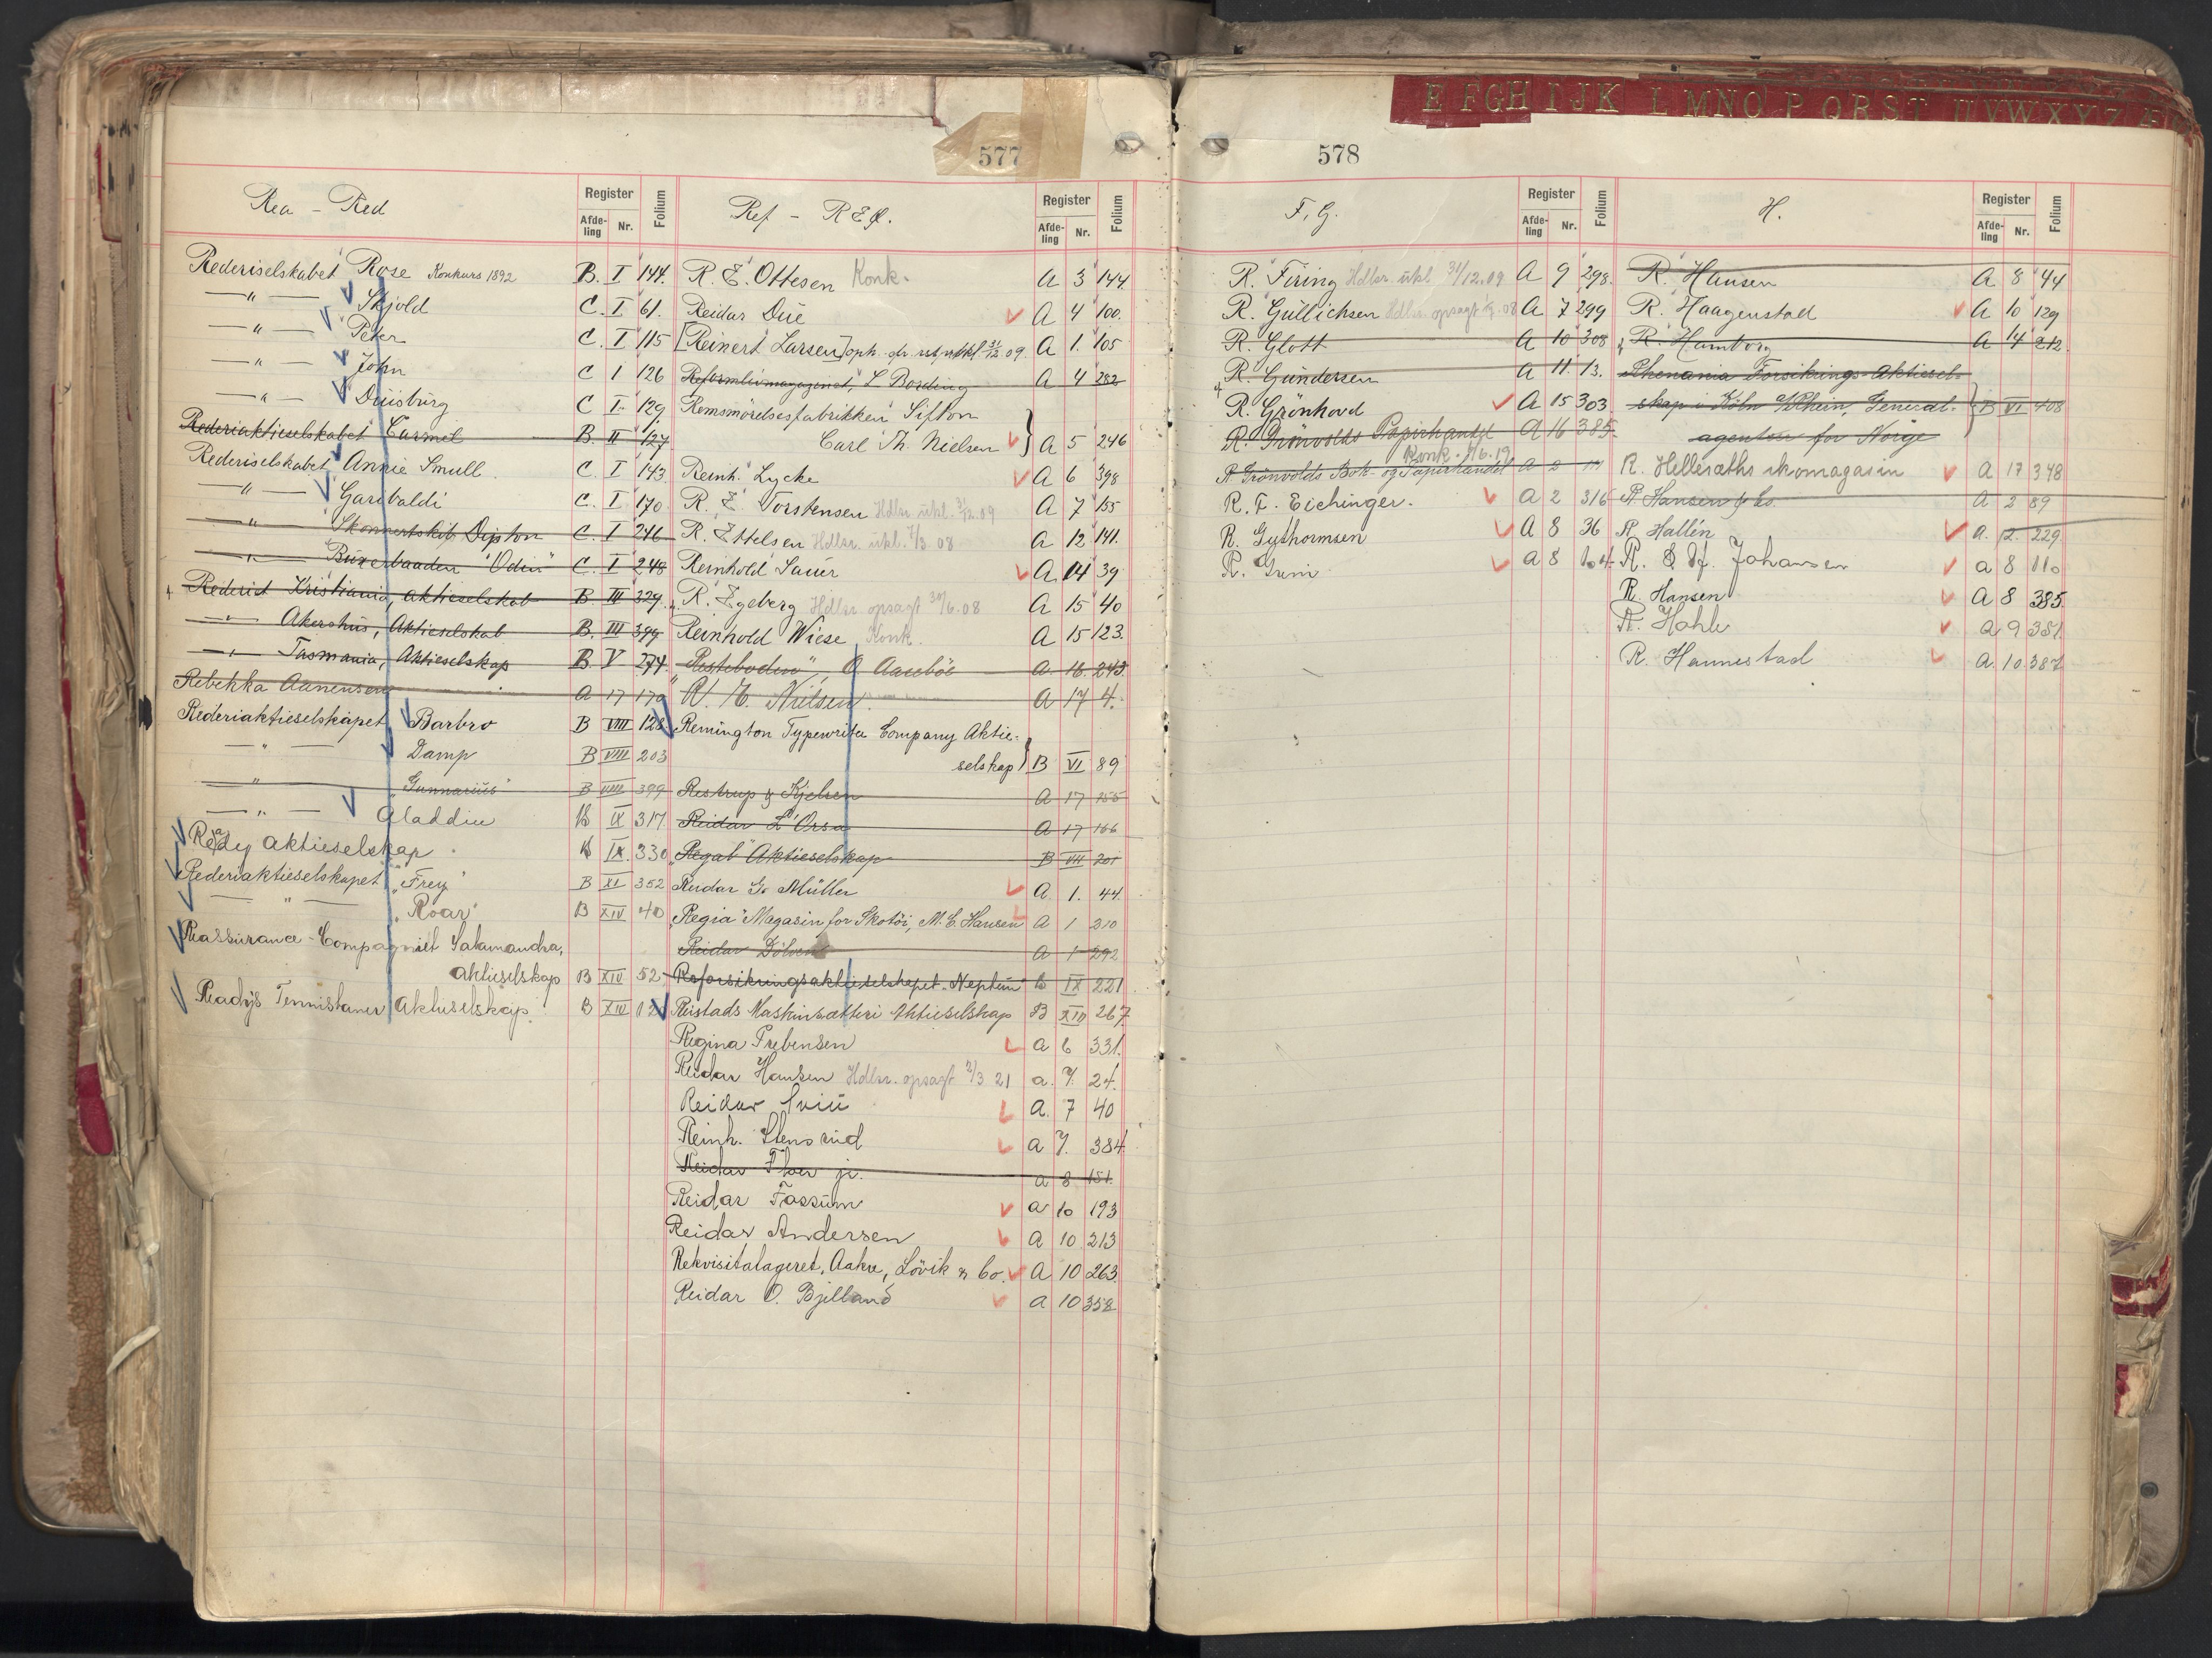 E FGH IJK L MNO P QRST UVWXYZ
577
Rea - Red
Register
Afdeling
Nr.
Folium
Rederiselskabet Rose Konkurs 1892 B. I 144.
—"— Skjold C. I 61.
—"— Peter C. I 115
—"— John C I 126
—"— Duisburg C I 129
Rederiaktieselskabet Carmel B. II 127
Rederiselskabet Annie Smull. C. I 143
—"— Garibaldi C. I 170
—"— Skonnertskib Dipton C. I 246
—"— Buxerbaaden "Odin" C. I 248
Rederiet Kristiania, aktieselskab B. III 329
—"— Akershus, Aktieselskab B. III 399
—"— Tasmania, Aktieselskap B V 274
Rebekka Aanensen A 17 179
Rederiaktieselskapet Barbro B VIII 128
—"— Damp B VIII 203
—"— "Gunnarius" B VIII 399
—"— Aladdin B IX 317
Ready aktieselskap B IX. 330
Rederiaktieselskapet "Frey" B XI 352
—"— "Roar" B XIV 40
Reassurance-Compagniet Salamandra,
aktieselskap B XIV 52
Ready's Tennisbaner Aktieselskap. B XIV
Ref - REQ.
Register
Afdeling
Nr.
Folium
R. E. Ottesen Konk. A 3 144.
Reidar Due A 4 100.
[Reinert Larsen] oph. 31/12 09. A 1. 105
Reformlivmagazinet, L Bording A 4 282
Remsmörelsesfabrikken Sifton
Carl Th. Nielsen } A 5 246
Reinh. Lycke A 6 398
R. E. Torstensen Hdlsr. utkl. 31/12.09 A 7 155
R. Ettelsen Hdlsr. utkl. 7/3 08 A 12 141.
Reinhold Sauer A. 14 39
R. Egeberg Hdlsr opsagt 30/6.08 A 15 40
Reinhold Wiese Konk. A 15 123.
"Resteboden", O Aareböe A. 16. 243.
R. E. Nielsen. A 17 4.
Remington Typewriter Company Aktie=
selskap } B VI 89
Restrup & Kjelsen A 17 155
Reidar L'Orsa A 17 166
"Regal" Aktieselskap B VIII 201
Reidar G. Müller A. 1. 44.
"Regia" Magasin for Skotöi, M. E. Hansen A 1 210
Reidar A 1 292
Reforsikringsaktieselskapet "Neptun" B IX 221
Reistads Maskinsætteri Aktieselskap B XIV 267
Regina Prebensen A 6 331.
Reidar Hansen Hdlsr. opsagt 2/3 21 a. 7. 24.
Reidar Sviu A. 7 40
Reinh. Stensrud A 7. 384
Reidar Thor jr. a 8 151.
Reidar Fossum a 10 193
Reidar Andersen A 10 213
Rekvisitalageret, Aakre, Lövik & Co. A 10 263.
Reidar O. Bjelland A 10 358
578
F, G.
Register
Afdeling
Nr.
Folium
R. Firing Hdlsr. utkl. 31/12.09 A 9 298.
R. Gullichsen Hdlsr opsagt 08 A 7 299
R. Glott A 10 308
R. Gundersen A 11. 13.
R. Grönhovd A 15 303.
R. Grönvolds Papirhandel A 16 385.
Konk. 6.19
R Grönvolds Bok- og Papirhandel A 2
R. F. Eichinger. A 2 316
R. Guthormsen A 8 36
R. Grim A 8 104
H.
Register
Afdeling
Nr.
Folium
R. Hansen A 8 44
R. Haagenstad A 10 129
R. Hamborg A 14 212.
Rhenania Forsikrings-Aktiesel-
skap i Köln a/Rhein, General- } B VI 408
agentur for Norge
R. Helleraths skomagasin A 17 348
R Hansen & Co. A 2 89
R Hallén A. 12. 229
R. & Hj. Johansen A 8 110
R. Hansen A 8 385.
R. Hohle A 9 381
R. Hannestad A. 10. 387